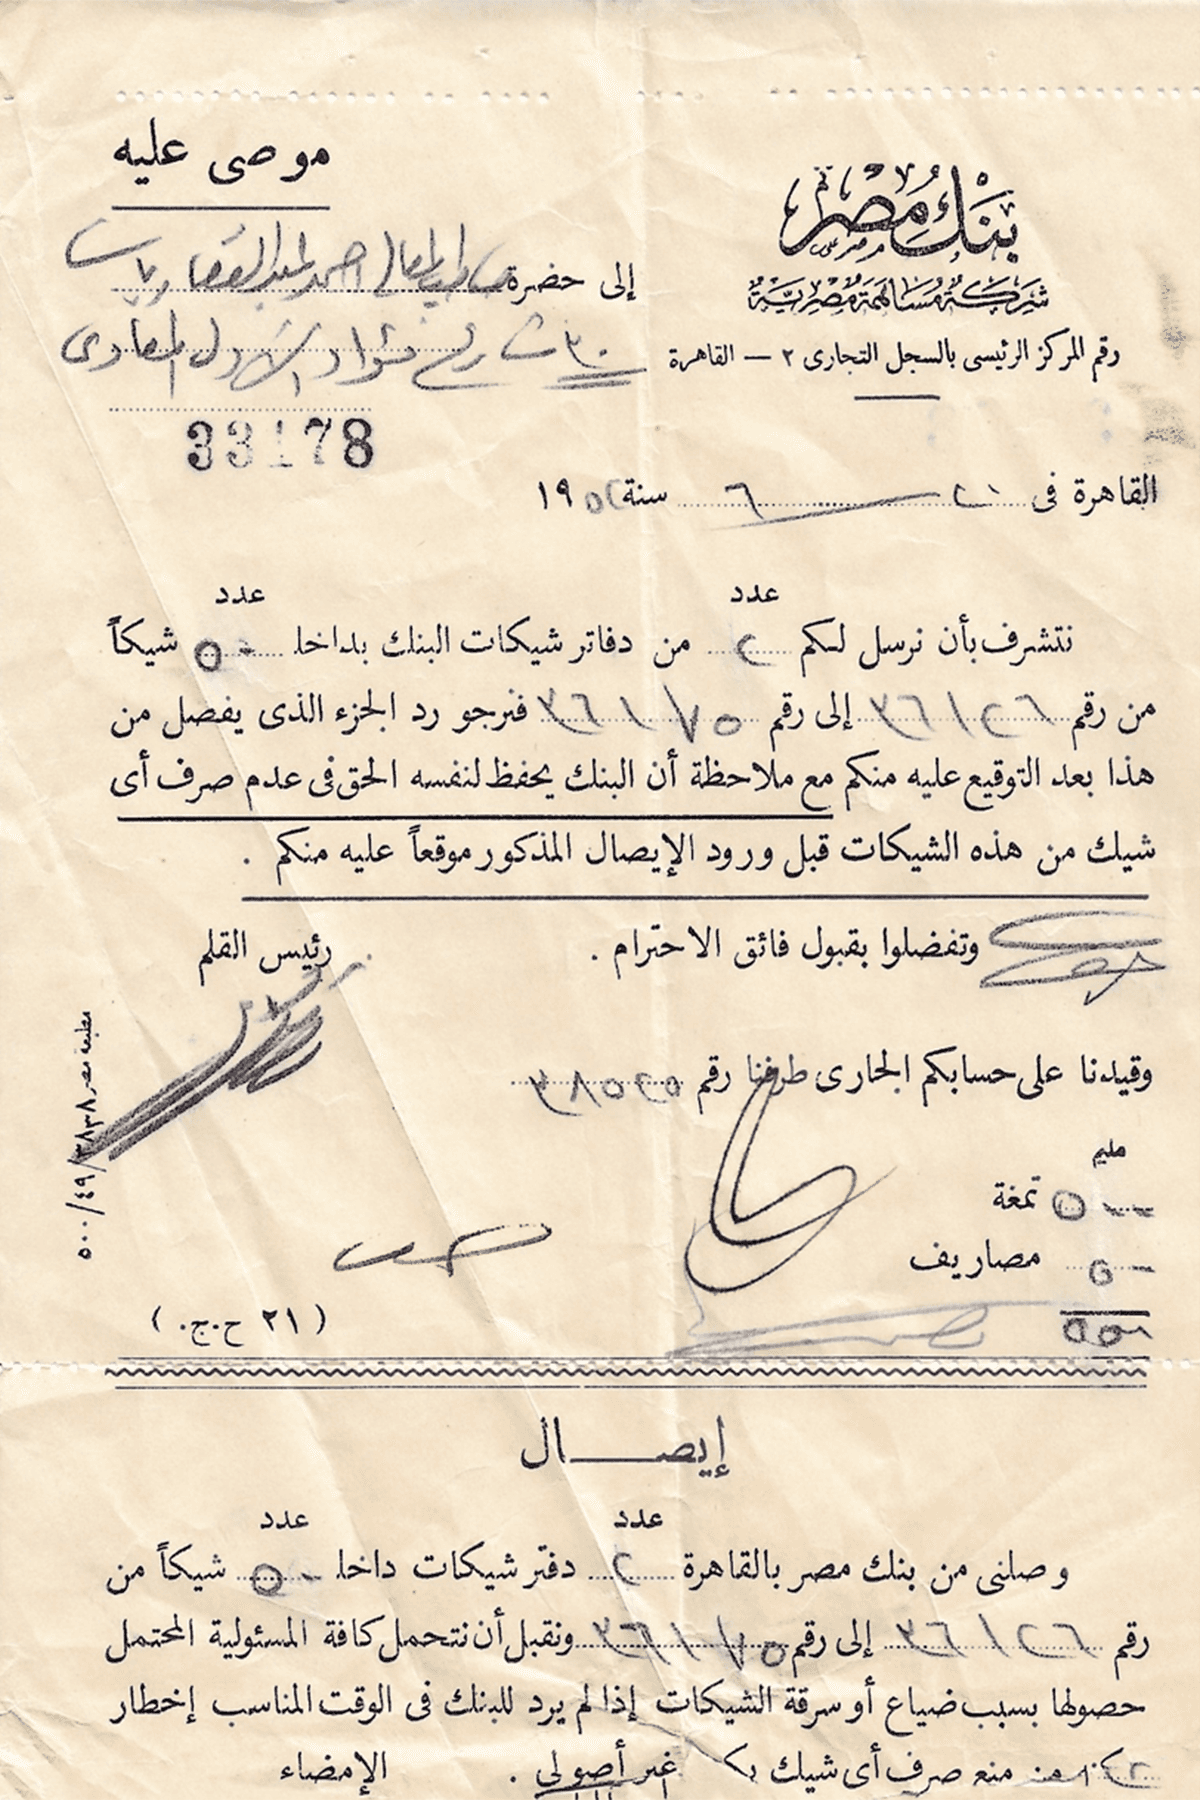 موصى عليه
بنك مصر
شركة مساهمة مصرية
رقم المركز الرئيسى بالسجل التجارى ٢ — القاهرة
إلى حضرة صاحب المعالى احمد عبد الغفار باشا
٣٠ شارع فؤاد الاول المعادى
33178
القاهرة فى ٢١ — ٦ سنة ١٩٥٢
عدد عدد
نتشرف بأن نرسل لكم ٢ من دفاتر شيكات البنك بداخل ٥٠ شيكاً
من رقم ٣٦١٢٦ إلى رقم ٣٦١٧٥ فنرجو رد الجزء الذى يفصل من
هذا بعد التوقيع عليه منكم مع ملاحظة أن البنك يحفظ لنفسه الحق فى عدم صرف أى
شيك من هذه الشيكات قبل ورود الإيصال المذكور موقعاً عليه منكم .
وتفضلوا بقبول فائق الاحترام .
رئيس القلم
وقيدنا على حسابكم الجارى طرفنا رقم
مليم
٥٠٠ تمغة
٥٠ مصاريف
٥٥٠
مطبعة مصر ٣٨٣٨/٤٩/٥٠٠
( ٢١ ح.ج. )
إيصال
عدد عدد
وصلنى من بنك مصر بالقاهرة ٢ دفتر شيكات داخل ٥٠ شيكاً من
رقم ٣٦١٢٦ إلى رقم ٣٦١٧٥ ونقبل أن نتحمل كافة المسئولية المحتمل
حصولها بسبب ضياع أو سرقة الشيكات إذا لم يرد للبنك فى الوقت المناسب إخطار
من منع صرف أى شيك غير أصولى .
الإمضاء